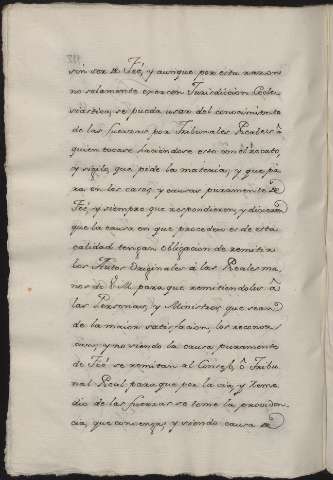 sin ser de Feé, y aunque por esta razon
no solamente exercen Jurisdicion Ecle-
siastica, se pueda usar del conocimiento
de las fuerzas por Tribunales Reales à
quien tocare haciendose esto con el recato,
y sigilo, que pide la materia; y que pa-
ra en los casos, y causas puramente de
Feé, y siempre que respondieren, y dixeren
que la causa en que proceden es de esta
calidad tengan obligacion de remitir
los Autos Originales á las Reales ma-
nos de V. M. para que remitiendolos à
las Personas, y Ministros que sean
de la maior satisfacion, los reconoz-
can, y no siendo la causa puramente
de Feé se remitan al Consejo, ò Tribu-
nal Real para que por la via, y reme-
dio de las fuerzas se tome la providen-
cia, que convenga, y siendo causa de